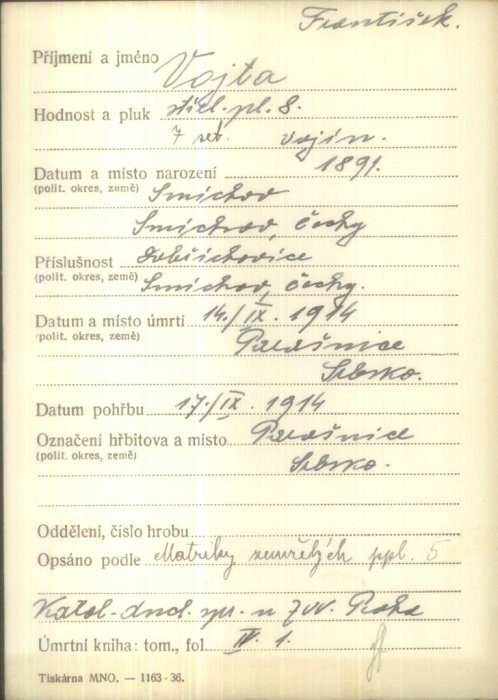 František.
Příjmení a jméno Vojta
Hodnost a pluk střel. pl. 8.
7 set. vojín.
Datum a místo narození 1891.
(polit. okres, země) Smíchov
Smíchov, Čechy
Příslušnost Dobřichovice
(polit. okres, země) Smíchov, Čechy.
Datum a místo úmrtí 14./IX. 1914
(polit. okres, země) Parašnice
Srbsko.
Datum pohřbu 17./IX. 1914
Označení hřbitova a místo Parašnice
(polit. okres, země) Srbsko.
Oddělení, číslo hrobu
Opsáno podle Matriky zemřelých ppl. 5
Katol. duch. spr. u ZVV. Praha
Úmrtní kniha: tom., fol. IV. 1.
Tiskárna MNO. — 1163-36.